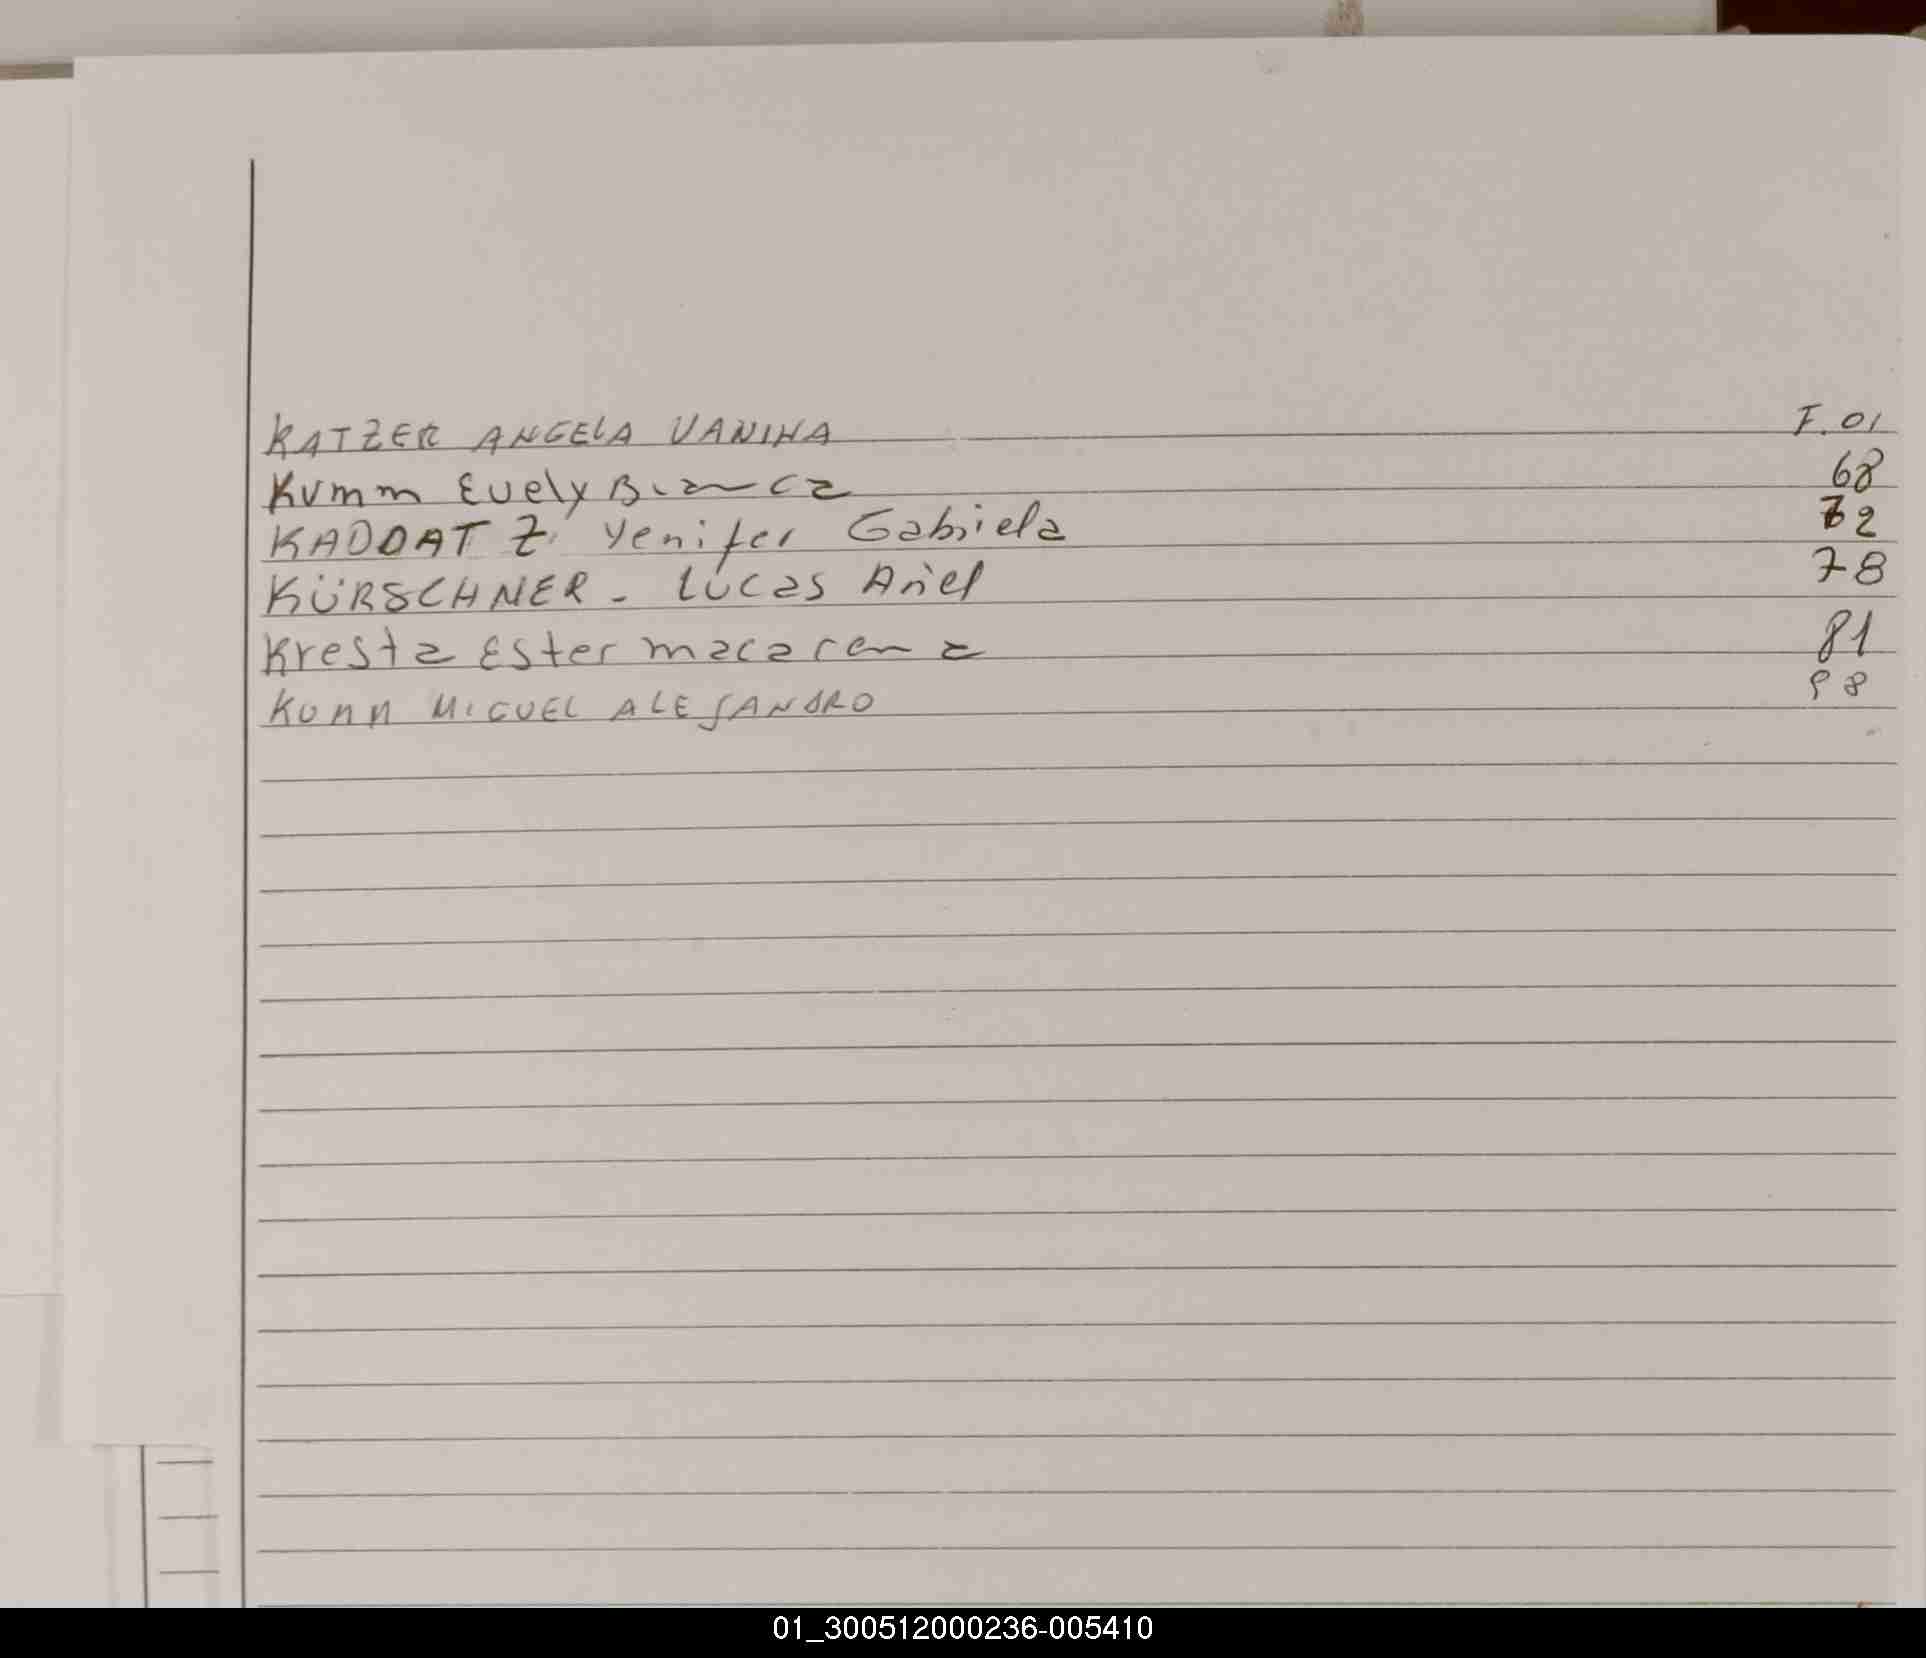 KATZER ANGELA VANINA F. 01
Kumm Evely Bianca 68
KADDAT Z. Yenifer Gabriela 72
KÜRSCHNER - Lucas Ariel 78
Kresta Ester macarena 81
KUMM MIGUEL ALEJANDRO 98
01_300512000236-005410